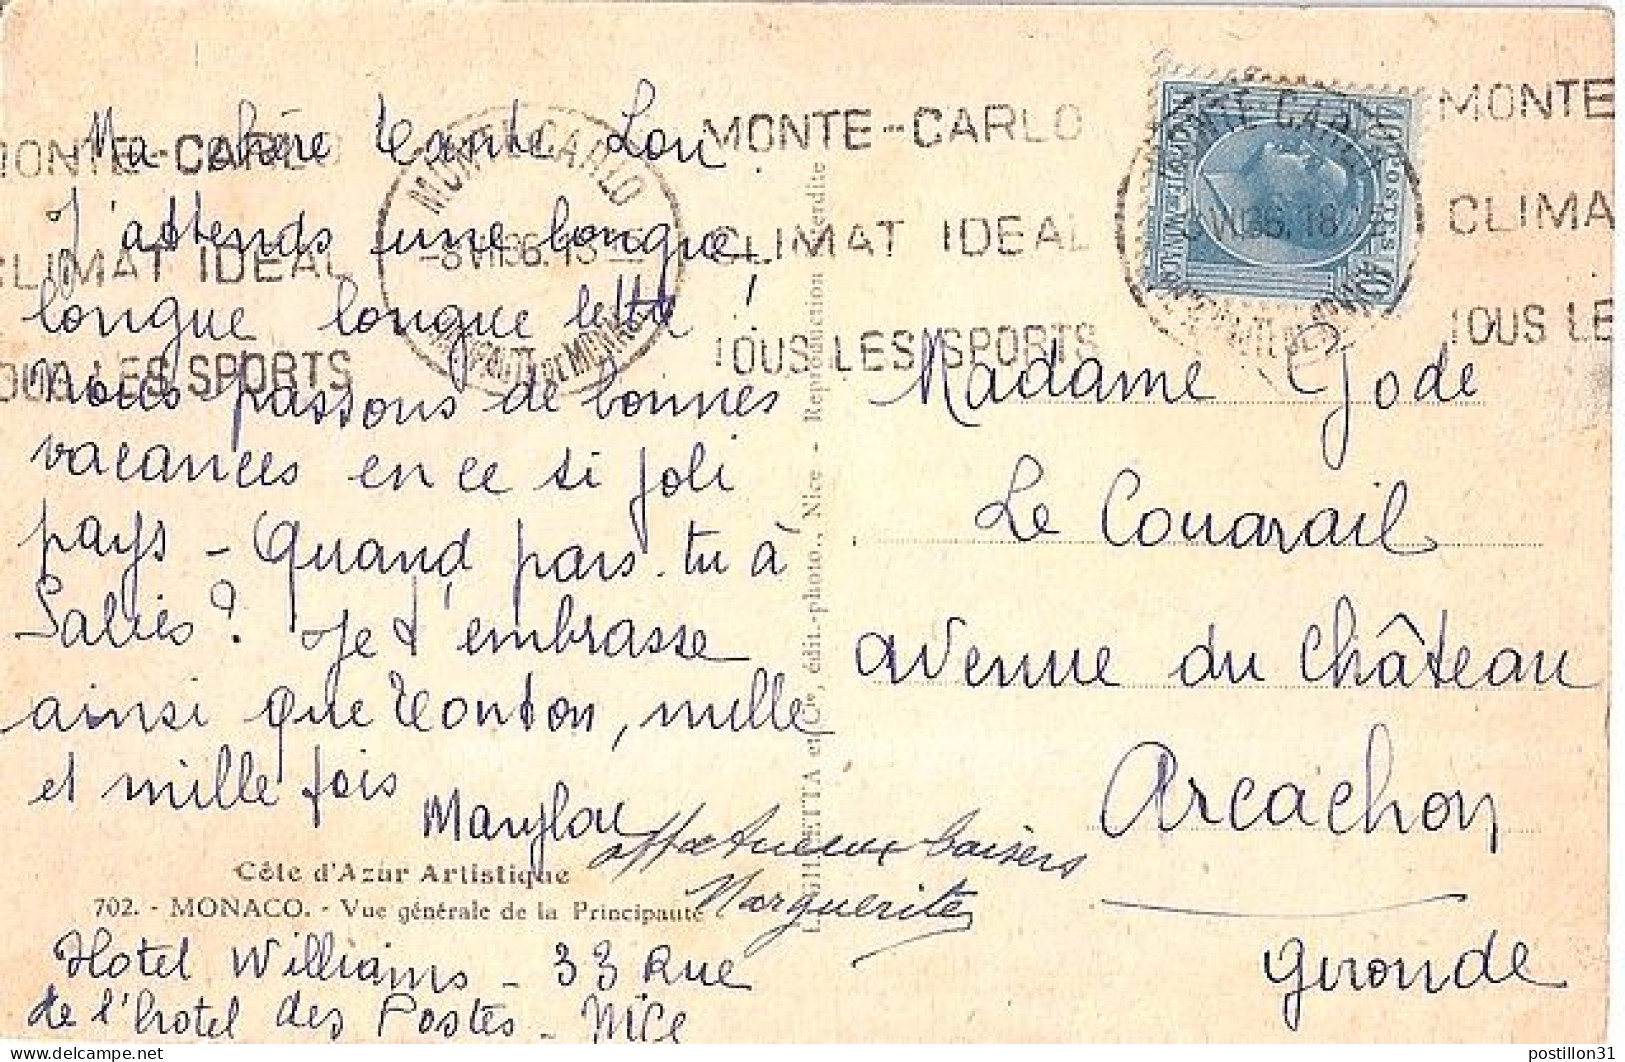 Ma chère tante Lou
J'attends une longue
longue longue lettre !
Nous passons de bonnes
vacances en ce si joli
pays - Quand pars-tu à
Salies ? Je t'embrasse
ainsi que tonton, mille
et mille fois
Marylou
affectueux baisers
Marguerite
Côte d'Azur Artistique
702. - MONACO. - Vue générale de la Principauté
Hotel Williams - 33 Rue
de l'hotel des Postes - Nice
MONTE-CARLO
CLIMAT IDEAL
TOUS LES SPORTS
MONTE-CARLO
PRINCIPAUTE DE MONACO
MONTE-CARLO
CLIMAT IDEAL
TOUS LES SPORTS
MONTE
CLIMA
TOUS LE
POSTES
édit.-photo., Nice - Reproduction interdite
Madame Gode
Le Couarail
avenue du Château
Arcachon
Gironde
postillon31